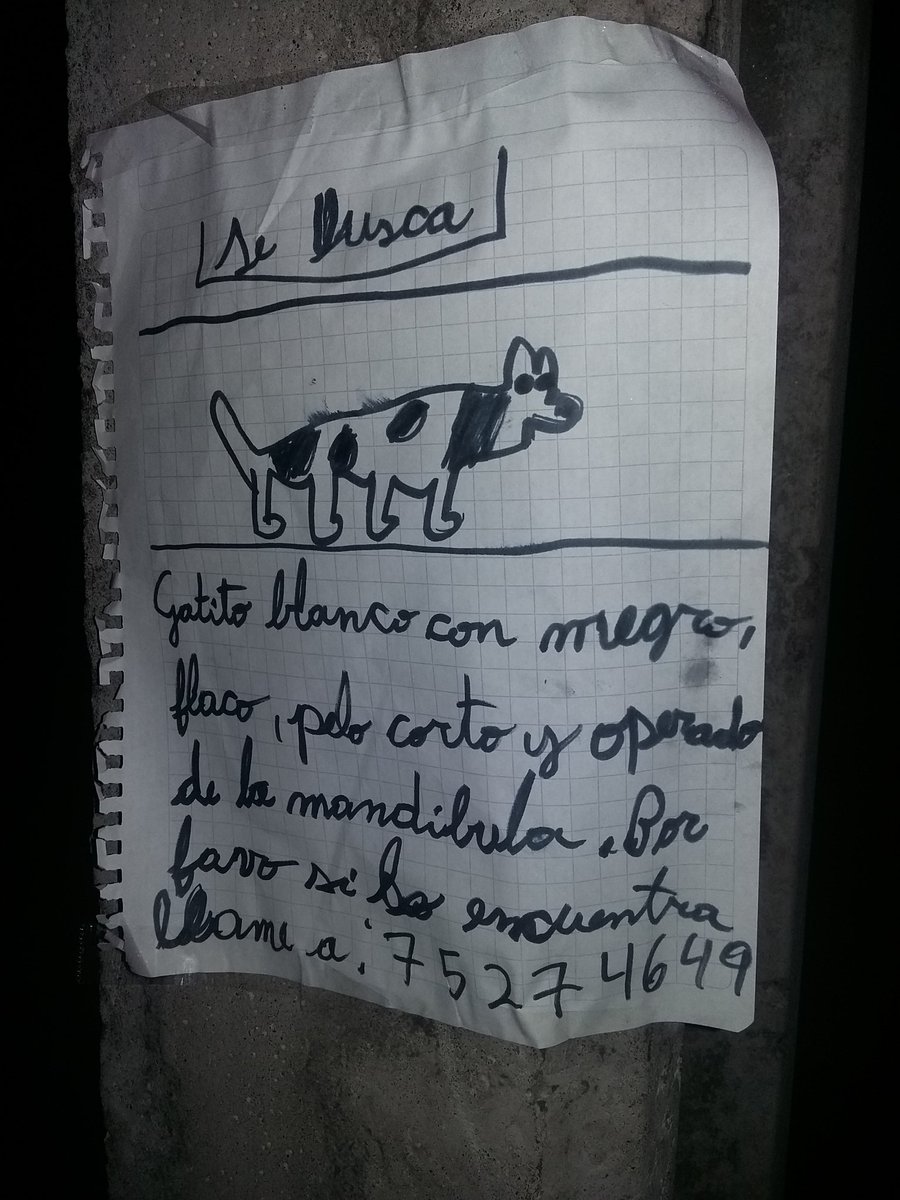 Se Busca
Gatito blanco con negro,
flaco, pelo corto y operado
de la mandibula. Por
favo si lo encuentra
llame a: 7 5 2 7 4 6 4 9